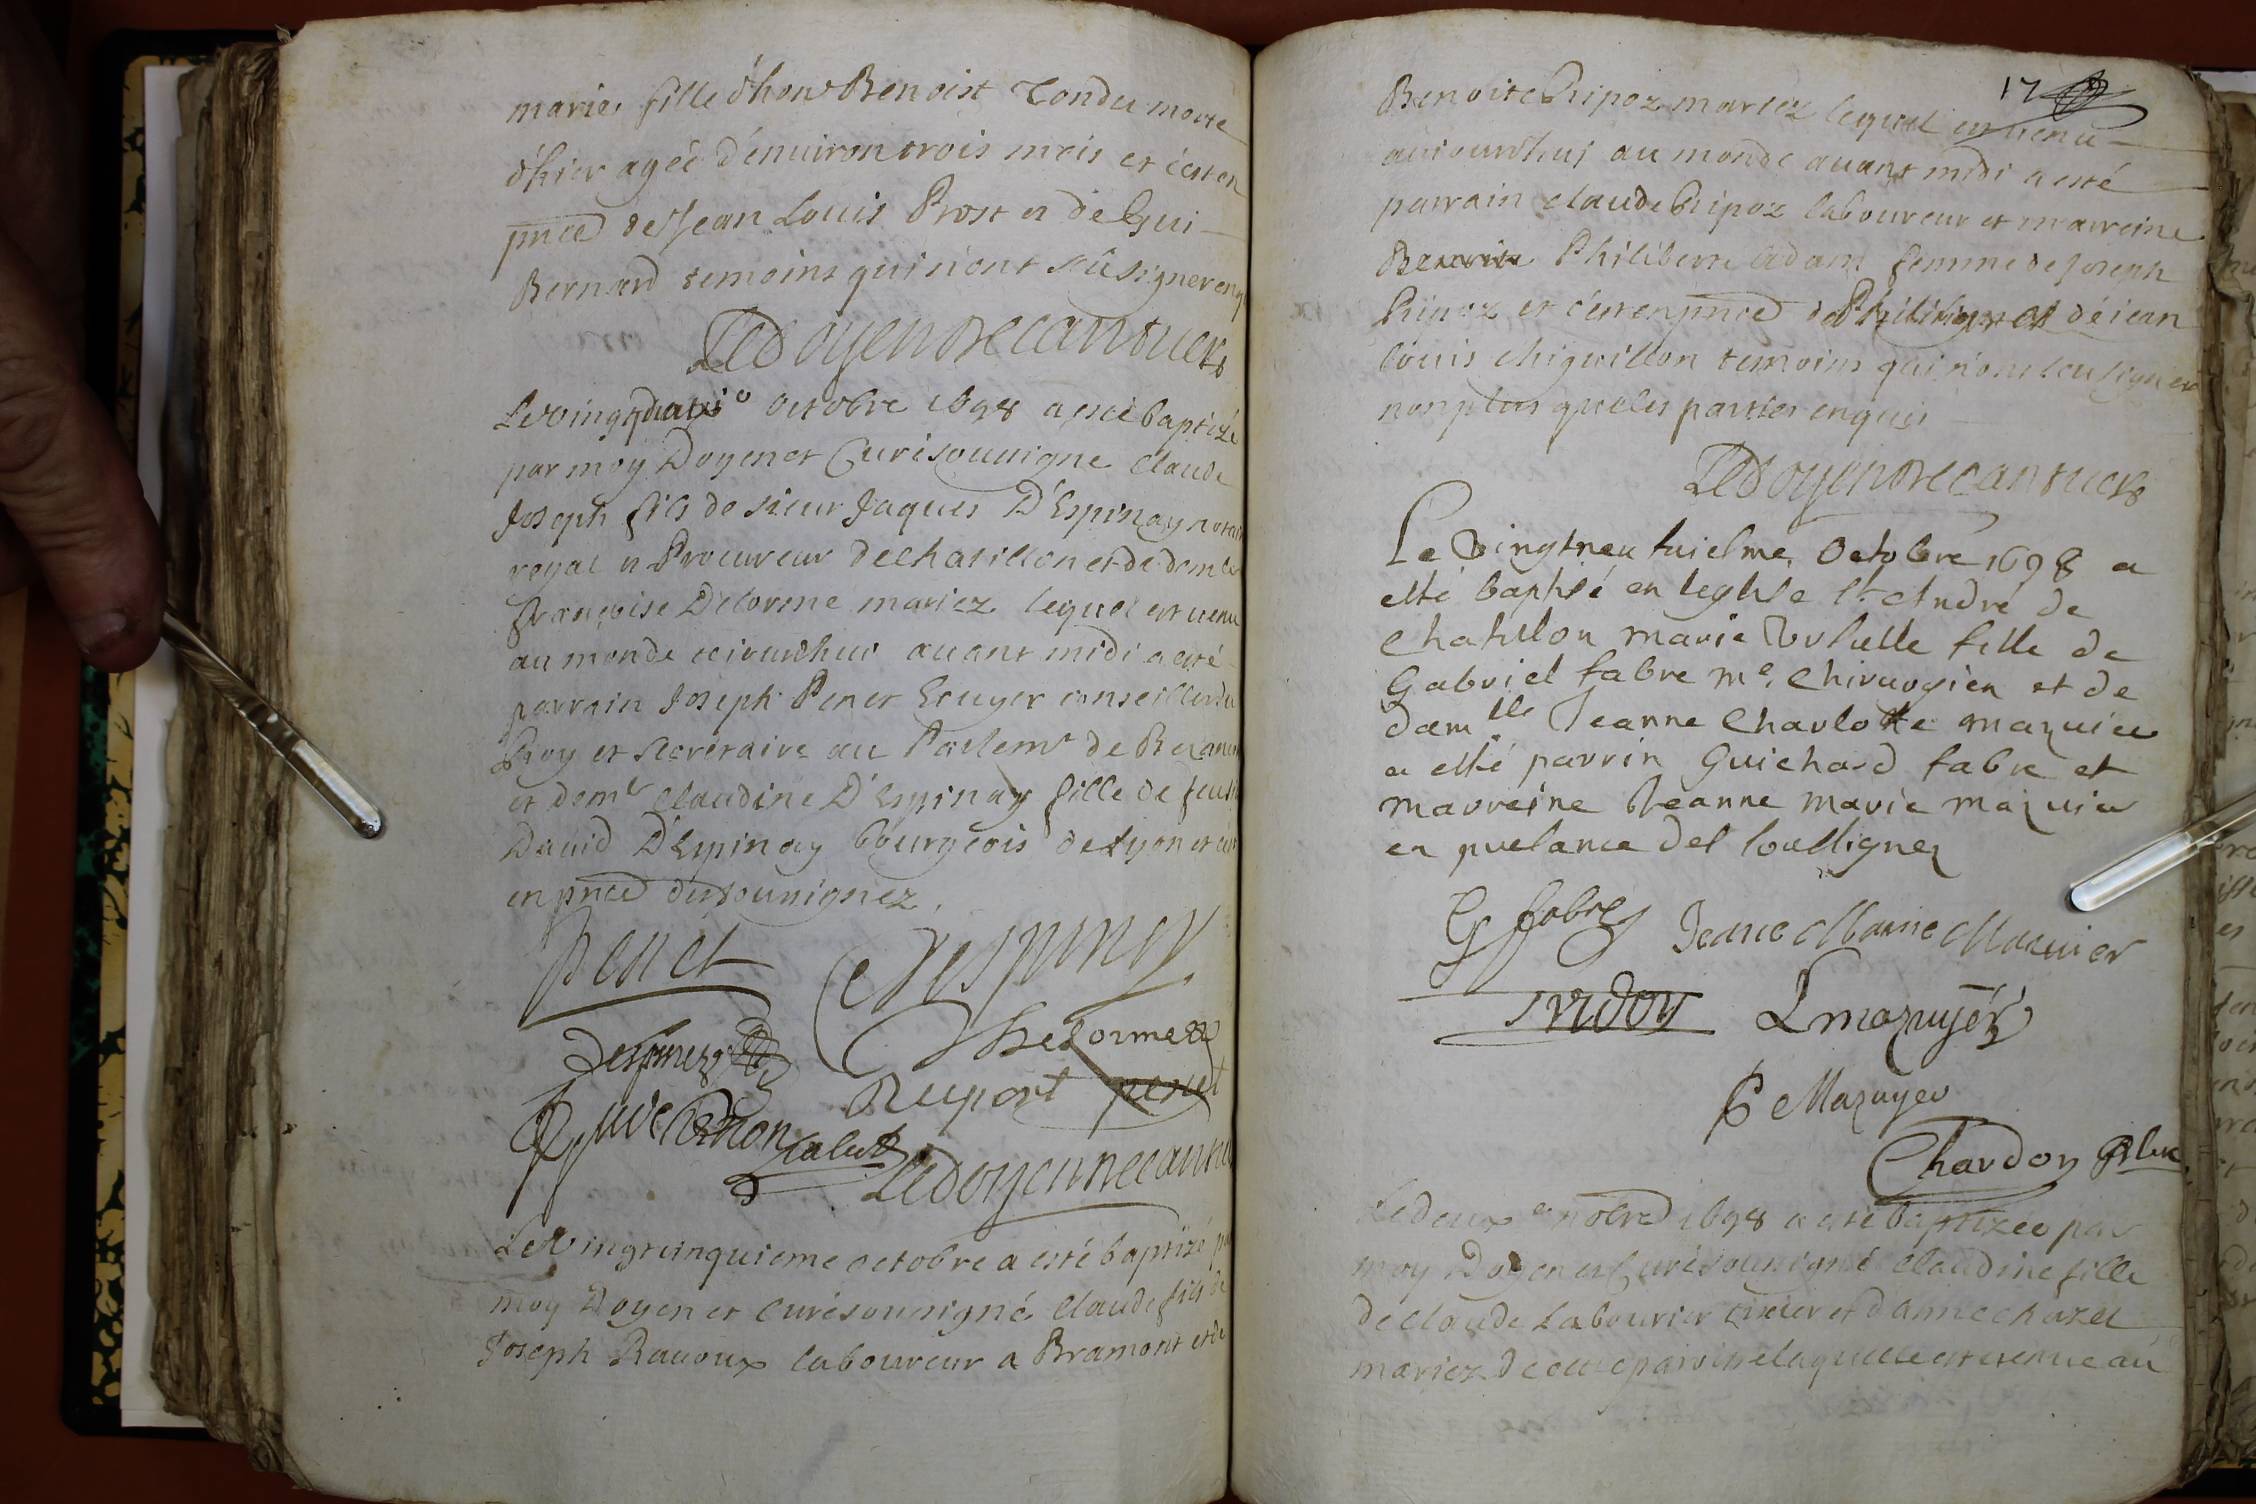 marie fille d'hon^e Benoist Tondu morte
d'hier agée d'environ trois mois et c'est en
pnce de Jean Louis Prost et de Gui
Bernard temoins qui n'ont sçû signer enq
Le Doyen Decantuers
Le vingt octobre 1698 a esté baptizé
par moy Doyen et Curé sousigne Claude
Joseph fils de sieur Jaques D'Espinay notai
royal et Procureur de chatillon et de dem
françoise Delorme mariez lequel est venu
au monde aujourdhui avant midi a esté
parrain Joseph Penet Ecuyer conseiller du
Roy et secretaire au Parlem^t de Besanc
et dem^e Claudine D'Espinay fille de feu
David D'Espinay bourgeois de Lyon et c'est
en pnce des sousignez.
Penet C Despiney
Despiney Delorme
Duport penet
Le Doyen Decantu
Le Vingt cinquieme octobre a esté baptizé p
moy Doyen et curé sousigné Claude fils de
Joseph Ravoux laboureur a Bramont et de
17
Benoite Pripoz mariez lequel est venu
aujourd'hui au monde avant midi a esté
parrain Claude Pripoz laboureur et marreine
Philiberte Adam femme de Joseph
Pripoz et c'est en pnce de et de jean
louis chiquillon temoins qui n'ont sceu signer
non plus que les parties enquis
Le Doyen Decantuers
Le Vingtneufuiesme Octobre 1698 a
esté baptisé en leglise St Andre de
Chatillon marie Ursulle fille de
Gabriel fabre m^e Chirurgien et de
dam^lle Jeanne Charlotte mazuier
a esté parrin Guichard fabre et
marreine Jeanne marie mazuier
en presance des soussignez
G fabre Jeane Marie Mazuier
L mazuyer
C Mazuyer
Chardon
Le deux^e nobre 1698 a esté baptizée par
moy Doyen et Curé sousigné Claudine fille
de Claude Labourier et d'anne chazel
mariez de cette paroisse laquelle est venue au